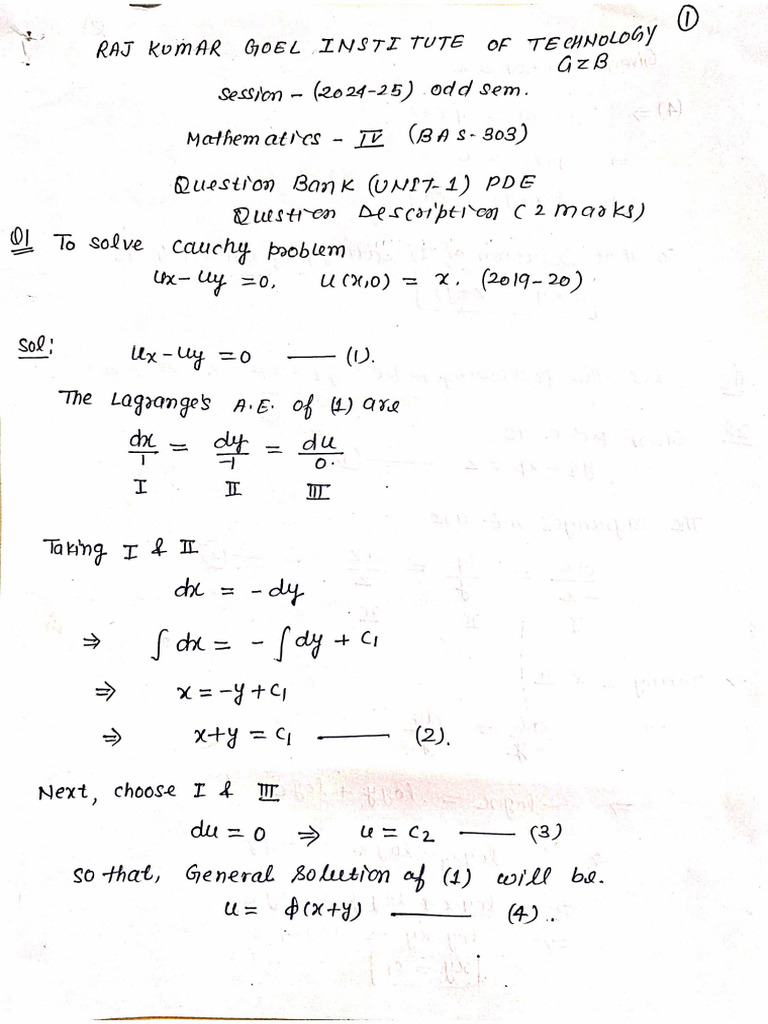 ①
RAJ KUMAR GOEL INSTITUTE OF TECHNOLOGY
GZB
Session - (2024-25) odd sem.
Mathematics - IV (BAS-303)
Question Bank (UNIT-1) PDE
Question Description (2 marks)
Q1 To solve Cauchy problem
ux - uy = 0, u(x,0) = x. (2019-20)
Sol: ux - uy = 0 —— (1).
The Lagrange's A.E. of (1) are
dx/1 = dy/-1 = du/0.
I II III
Taking I & II
dx = - dy
⇒ ∫ dx = - ∫ dy + C1
⇒ x = -y + C1
⇒ x+y = C1 —— (2).
Next, choose I & III
du = 0 ⇒ u = C2 —— (3)
So that, General Solution of (1) will be.
u = ϕ(x+y) —— (4)..